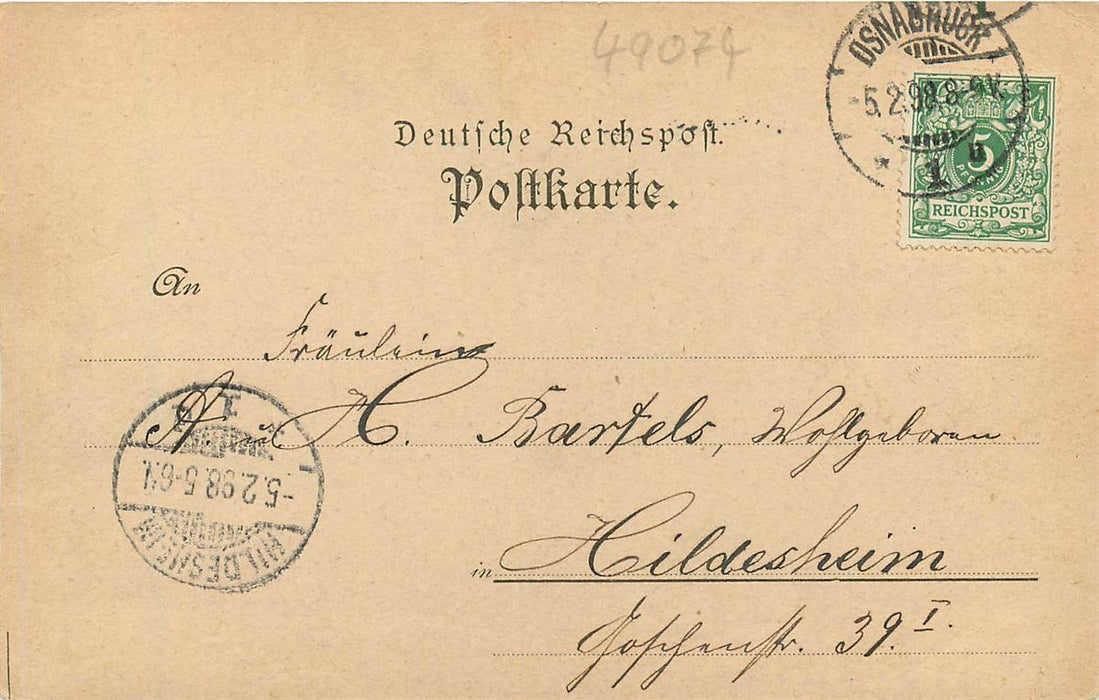 49074
OSNABRÜCK
-5.2.98.8-9V.
* 1 u
5
PFENNIG
REICHSPOST
Deutsche Reichspost.
Postkarte.
An
Fräulein
A u H. Bartels, Wohlgeboren
HILDESHEIM
-5.2.98.5-6N.
in Hildesheim
Goschenstr. 39 I.